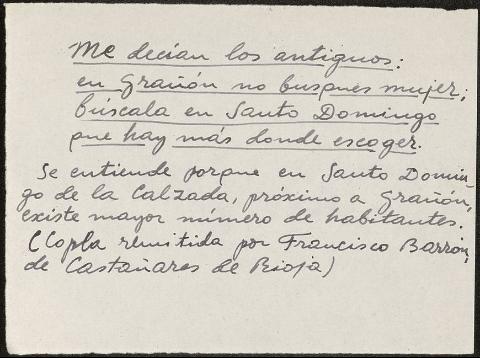 Me decían los antiguos:
en Grañón no busques mujer;
búscala en Santo Domingo
que hay más donde escoger.
Se entiende porque en Santo Domin-
go de la Calzada, próximo a Grañón,
existe mayor número de habitantes.
(Copla remitida por Francisco Barrón,
de Castañares de Rioja)